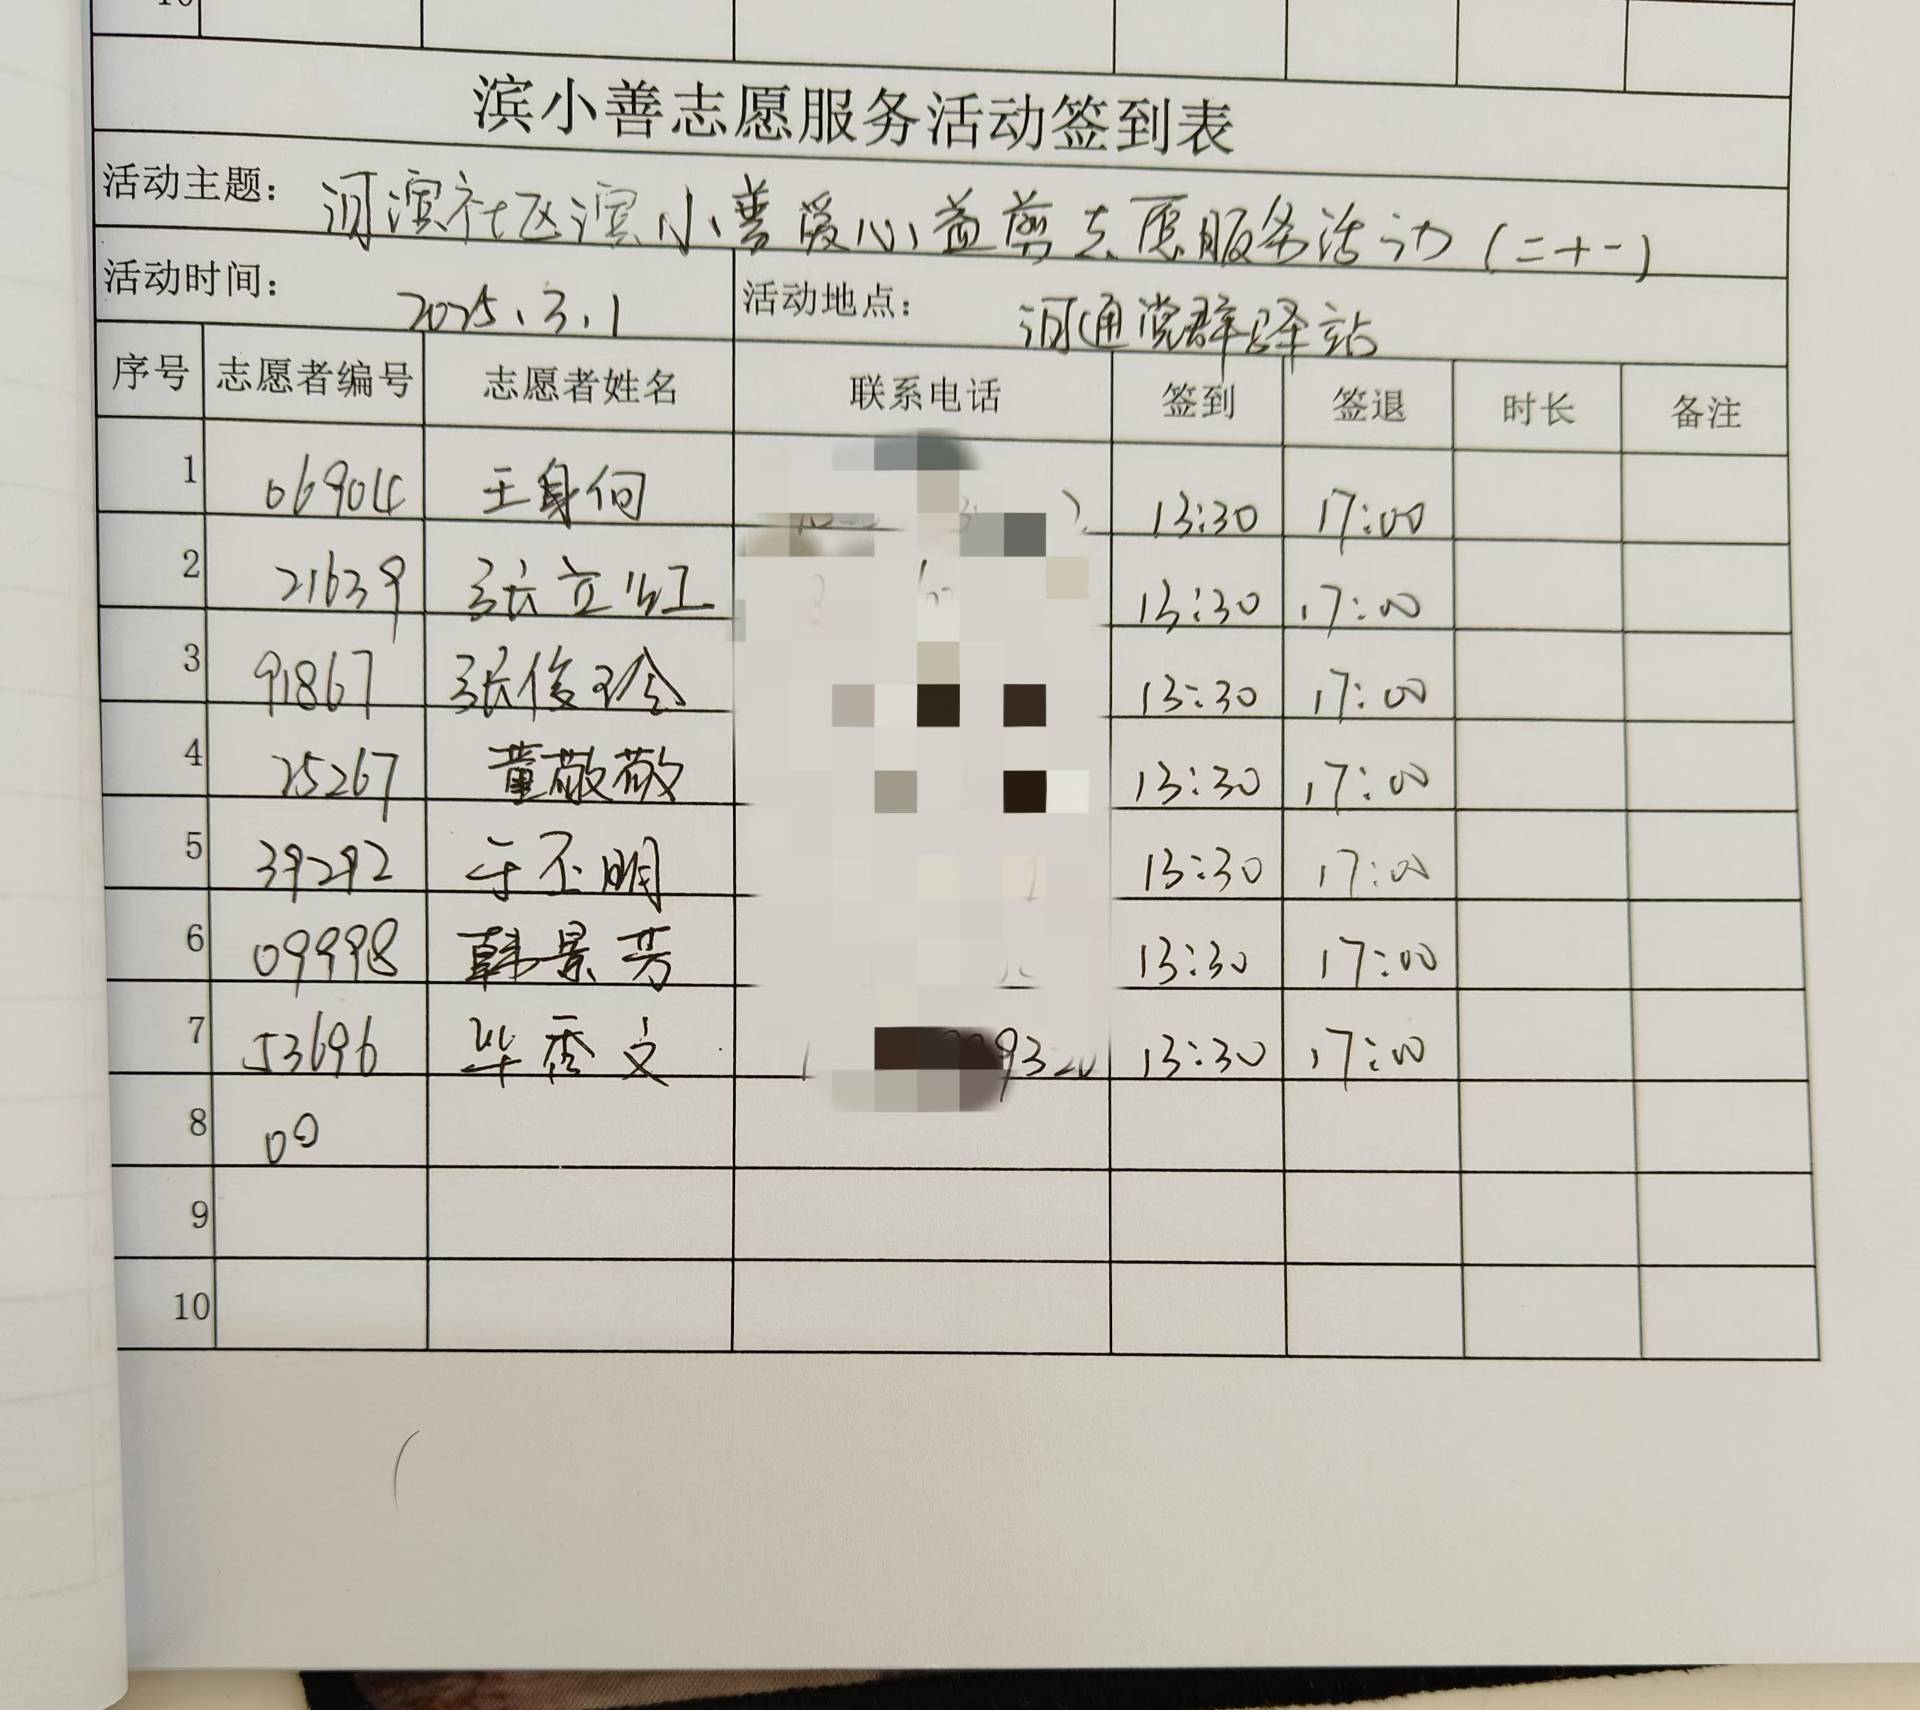 10
滨小善志愿服务活动签到表
活动主题: 河滨社区滨小善爱心益剪志愿服务活动(二十一)
活动时间: 2025.3.1 活动地点: 河通党群驿站
序号 志愿者编号 志愿者姓名 联系电话 签到 签退 时长 备注
1 06904 王身何 13:30 17:00
2 21639 张立红 13:30 17:00
3 91867 张俊玲 13:30 17:00
4 25267 董敬敬 13:30 17:00
5 39292 于丕明 13:30 17:00
6 09998 韩景芳 13:30 17:00
7 53696 毕秀文 9320 13:30 17:00
8 00
9
10